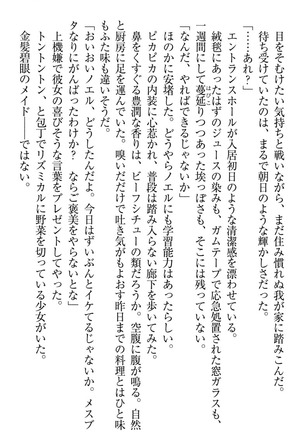 目をそむけたい気持ちと戦いながら、まだ住み慣れぬ我が家に踏み出す。
待ち受けていたのは、まるで朝日のような輝かしさだった。
「……あれ？」
エントランスホールが入居初日のような清潔感を漂わせている。
絨毯にあったはずのジュースの染みも、ガムテープで応急処置された窓ガラスも、
一週間にして蔓延りつつあった埃っぽさも、そこには残っていない。
「なんだ、やればできるじゃないか」
ほのかに安堵した。どうやらノエルにも学習能力はあったらしい。
ピカピカの内装に心惹かれ、普段は踏み入らない廊下を歩いてみる。
鼻をくすぐる豊潤な香りは、ビーフシチューの類だろうか。空腹に腹が鳴る。自然
と厨房に足を運んでいた。嗅いだだけで吐き気がもよおす昨日までの料理とはひと味
もふた味も違いそうだ。
「おいおいノエル、どうしたんだよ。今日はずいぶんとイケてるじゃないか。メスブ
タなりにがんばったわけか？　ならご褒美をやらないとな」
上機嫌で彼女の喜びそうな言葉をプレゼントしてやった。
トントントン、と包丁でリズミカルに野菜を切っている少女がいた。
金髪碧眼のメイド――ではない。